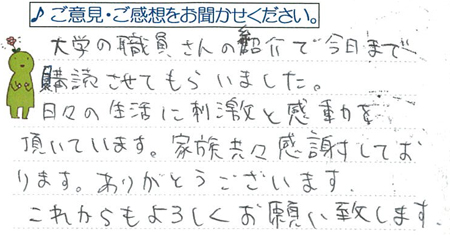 ♪ご意見・ご感想をお聞かせください。
大学の職員さんの紹介で今日まで
購読させてもらいました。
日々の生活に刺激と感動を
頂いています。家族共々感謝してお
ります。ありがとうございます.
これからもよろしくお願い致します.